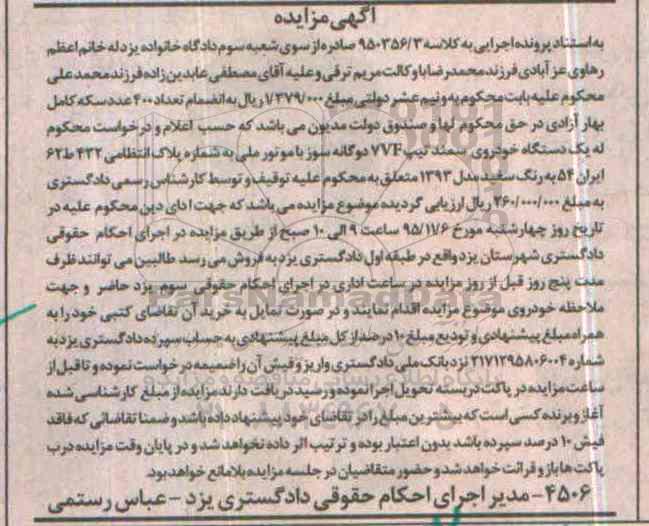 آگهی مزایده
به استناد پرونده اجرایی به کلاسه ۹۵۰۳۵۶/۳ صادره از سوی شعبه سوم دادگاه خانواده یزد له خانم اعظم
رهاوی عز آبادی فرزند محمدرضا با وکالت مریم ترقی و علیه آقای مصطفی عابدین زاده فرزند محمد علی
محکوم علیه بابت محکوم به و نیم عشر دولتی مبلغ ۱/۳۷۹/۰۰۰ ریال به انضمام تعداد ۴۰۰ عدد سکه کامل
بهار آزادی در حق محکوم لها و صندوق دولت مدیون می باشد که حسب اعلام و درخواست محکوم
له یک دستگاه خودروی سمند تیپ ۷۷F دوگانه سوز با موتور ملی به شماره پلاک انتظامی ۴۳۲ ط ۶۲
ایران ۵۴ به رنگ سفید مدل ۱۳۹۳ متعلق به محکوم علیه توقیف و توسط کارشناس رسمی دادگستری
به مبلغ ۲۶۰/۰۰۰/۰۰۰ ریال ارزیابی گردیده موضوع مزایده می باشد که جهت ادای دین محکوم علیه در
تاریخ روز چهارشنبه مورخ ۹۵/۱۱/۶ ساعت ۹ الی ۱۰ صبح از طریق مزایده در اجرای احکام حقوقی
دادگستری شهرستان یزد واقع در طبقه اول دادگستری یزد به فروش می رسد طالبین می توانند ظرف
مدت پنج روز قبل از روز مزایده در ساعت اداری در اجرای احکام حقوقی سوم یزد حاضر و جهت
ملاحظه خودروی موضوع مزایده اقدام نمایند و در صورت تمایل به خرید آن تقاضای کتبی خود را به
همراه مبلغ پیشنهادی و تودیع مبلغ ۱۰ درصد از کل مبلغ پیشنهادی به حساب سپرده دادگستری یزد به
شماره ۲۱۷۱۲۹۵۸۰۶۰۰۴ نزد بانک ملی دادگستری واریز و فیش آن را ضمیمه درخواست نموده و تا قبل از
ساعت مزایده در پاکت دربسته تحویل اجرا نموده و رسید دریافت دارند مزایده از مبلغ کارشناسی شده
آغاز و برنده کسی است که بیشترین مبلغ را در تقاضای خود پیشنهاد داده باشد و ضمنا تقاضائی که فاقد
فیش ۱۰ درصد سپرده باشد بدون اعتبار بوده و ترتیب اثر داده نخواهد شد و در پایان وقت مزایده درب
پاکت ها باز و قرائت خواهد شد و حضور متقاضیان در جلسه مزایده بلامانع خواهد بود.
۴۵۰۶- مدیر اجرای احکام حقوقی دادگستری یزد - عباس رستمی
ParsNamadData